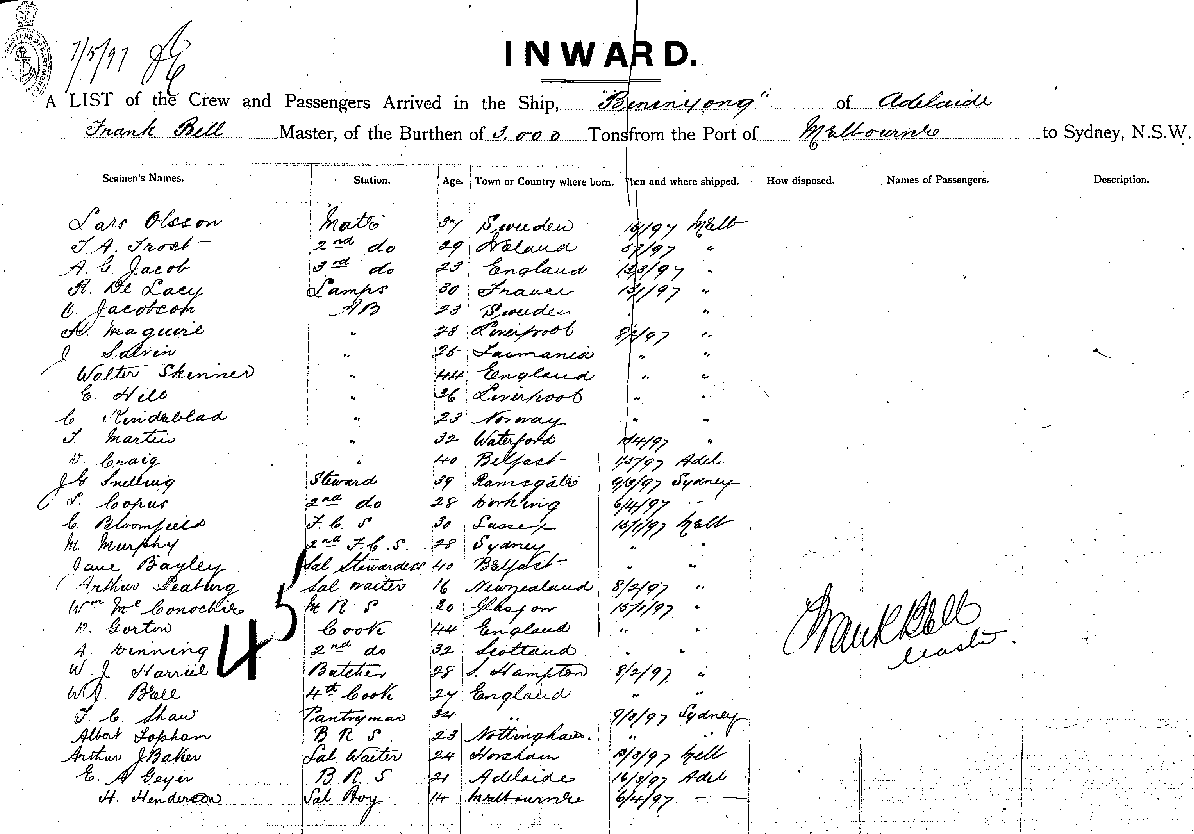 7/5/97
INWARD.
A LIST of the Crew and Passengers Arrived in the Ship, "Buninyong" of Adelaide
Frank Bell Master, of the Burthen of 3.000 Tons from the Port of Melbourne to Sydney, N.S.W.
Seamen's Names. Station. Age. Town or Country where born. When and where shipped. How disposed. Names of Passengers. Description.
Lars Olsson Mate 37 Sweden /97 Melb
T. A. Frost 2nd do 29 /97 "
A. C Jacob 3rd do 23 England /97 "
R. De Lacy Lamps 30 France 15/1/97 "
C. Jacobson AB 23 Sweden " "
Maguire " 28 Liverpool 8/2/97 "
J " 25 Tasmania " "
Walter Skinner " 44 England " "
E. Hill " 26 Liverpool " "
C Kindablad " 23 Norway " "
T. Martin " 32 Waterford /4/97 "
D. Craig " 40 Belfast /97 Adel
J G Snelling Steward 39 Ramsgate 9/3/97 Sydney
Copus 2nd do 28 6/4/97 "
C. Bloomfield F. C. S 30 Sussex 15/1/97 Melb
M. Murphy 2nd F. C. S. 28 Sydney " "
Jane Bayley Sal Stewardess 40 Belfast " "
Arthur Sal Waiter 16 New Zealand 8/2/97 "
Wm Mc Conochie M R S 20 Glasgow 15/1/97 "
Gorton Cook 44 England " "
45
A. Dinning 2nd do 32 Scotland " "
W. J. Butcher 28 S. Hampton 8/2/97 "
W J. Bell 4th Cook 27 England " "
Frank Bell
Master.
T. C. Shaw Pantryman 32 " 9/3/97 Sydney
Albert Topham B R S 23 Nottingham. " "
Arthur J Baker Sal Waiter 24 Horsham /3/97 Melb
E. A Geyer B. R. S 21 Adelaide 16/3/97 Adel
H. Henderson Sal Boy 14 Melbourne 6/4/97 — —